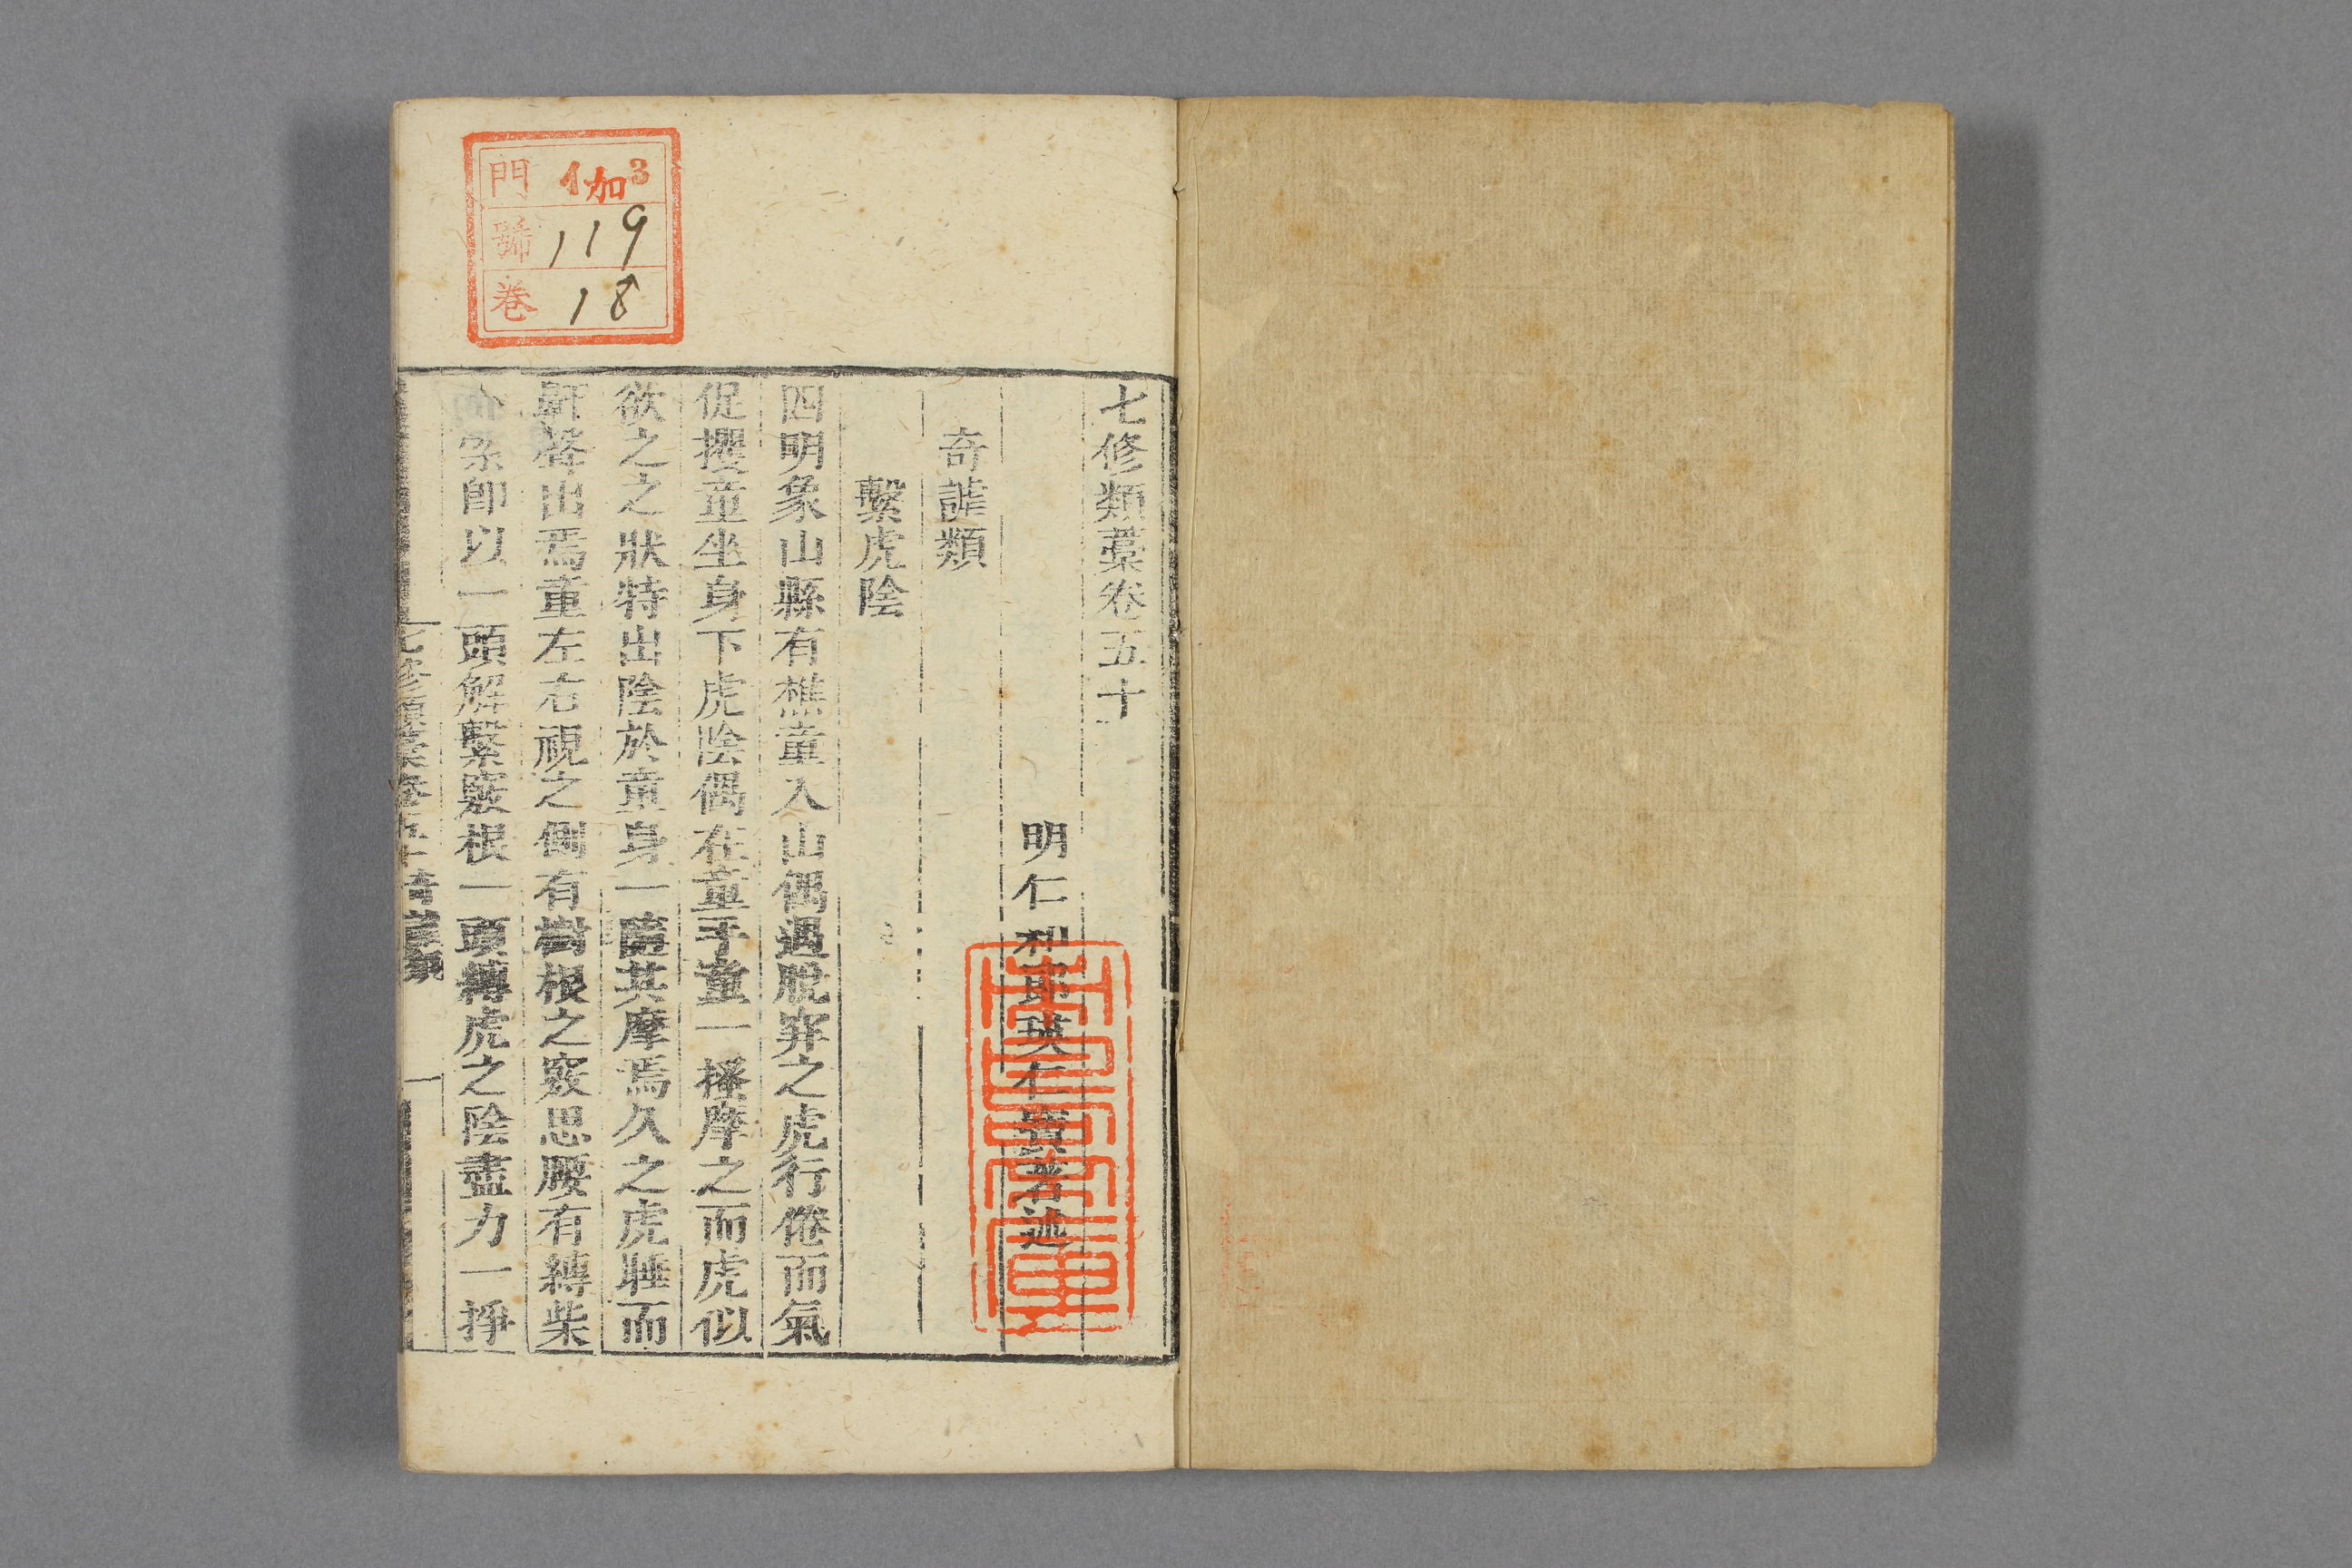 七修類藁卷五十
明仁和郎瑛仁寶著述
奇謔類
繫虎陰
四明象山縣有樵童入山偶遇脫穽之虎行倦而氣
促攫童坐身下虎陰偶在童手童一搔摩之而虎似
欲之之狀特出陰於童身一隨其摩焉久之虎睡而
鼾聲出焉童左右視之側有樹根之竅思腰有縛柴
索即以一頭解繫竅根一頭縛虎之陰盡力一掙
七修類藁卷五十奇謔類 一
門 伽3
號 119
卷 18